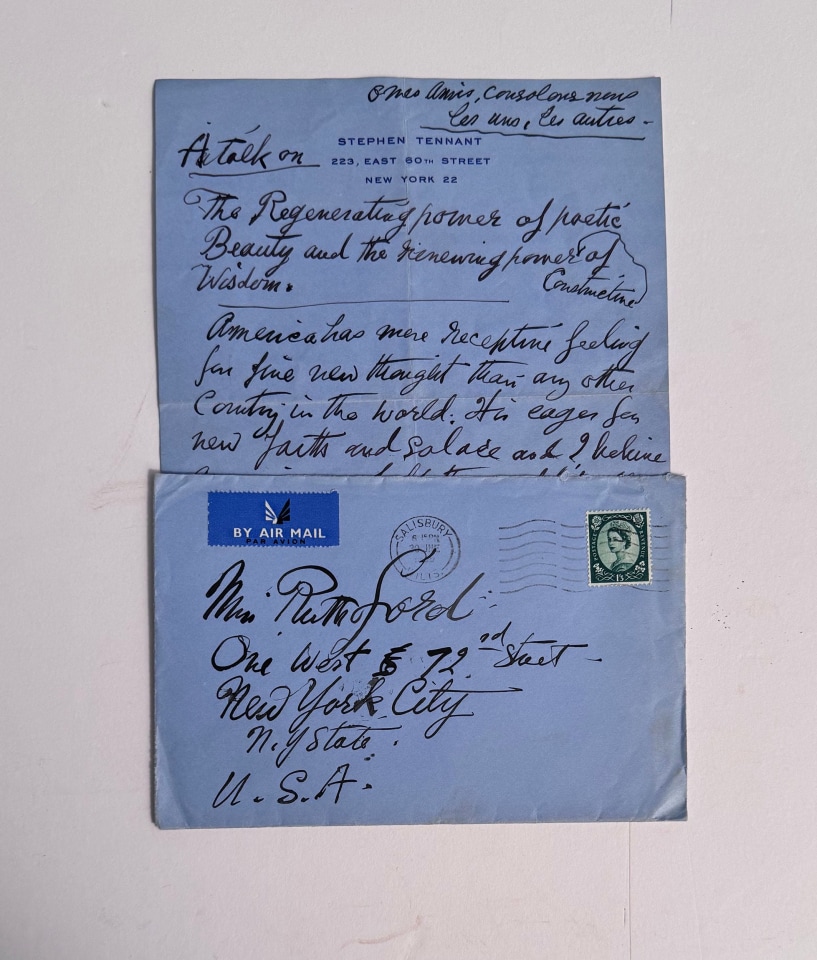 O mes Amis, Consolons nous
les uns, les autres -
STEPHEN TENNANT
223, EAST 60TH STREET
NEW YORK 22
A talk on
The Regenerating power of poetic
Beauty and the renewing power of
Constructive
Wisdom.
America has more receptive feeling
for fine new thought than any other
Country in the world. It is eager for
new faith and solace and I believe
BY AIR MAIL
PAR AVION
SALISBURY
WILTS
POSTAGE
REVENUE
1/3
Miss Ruth Ford
One West 72nd Street -
New York City
N.Y State.
U.S.A.